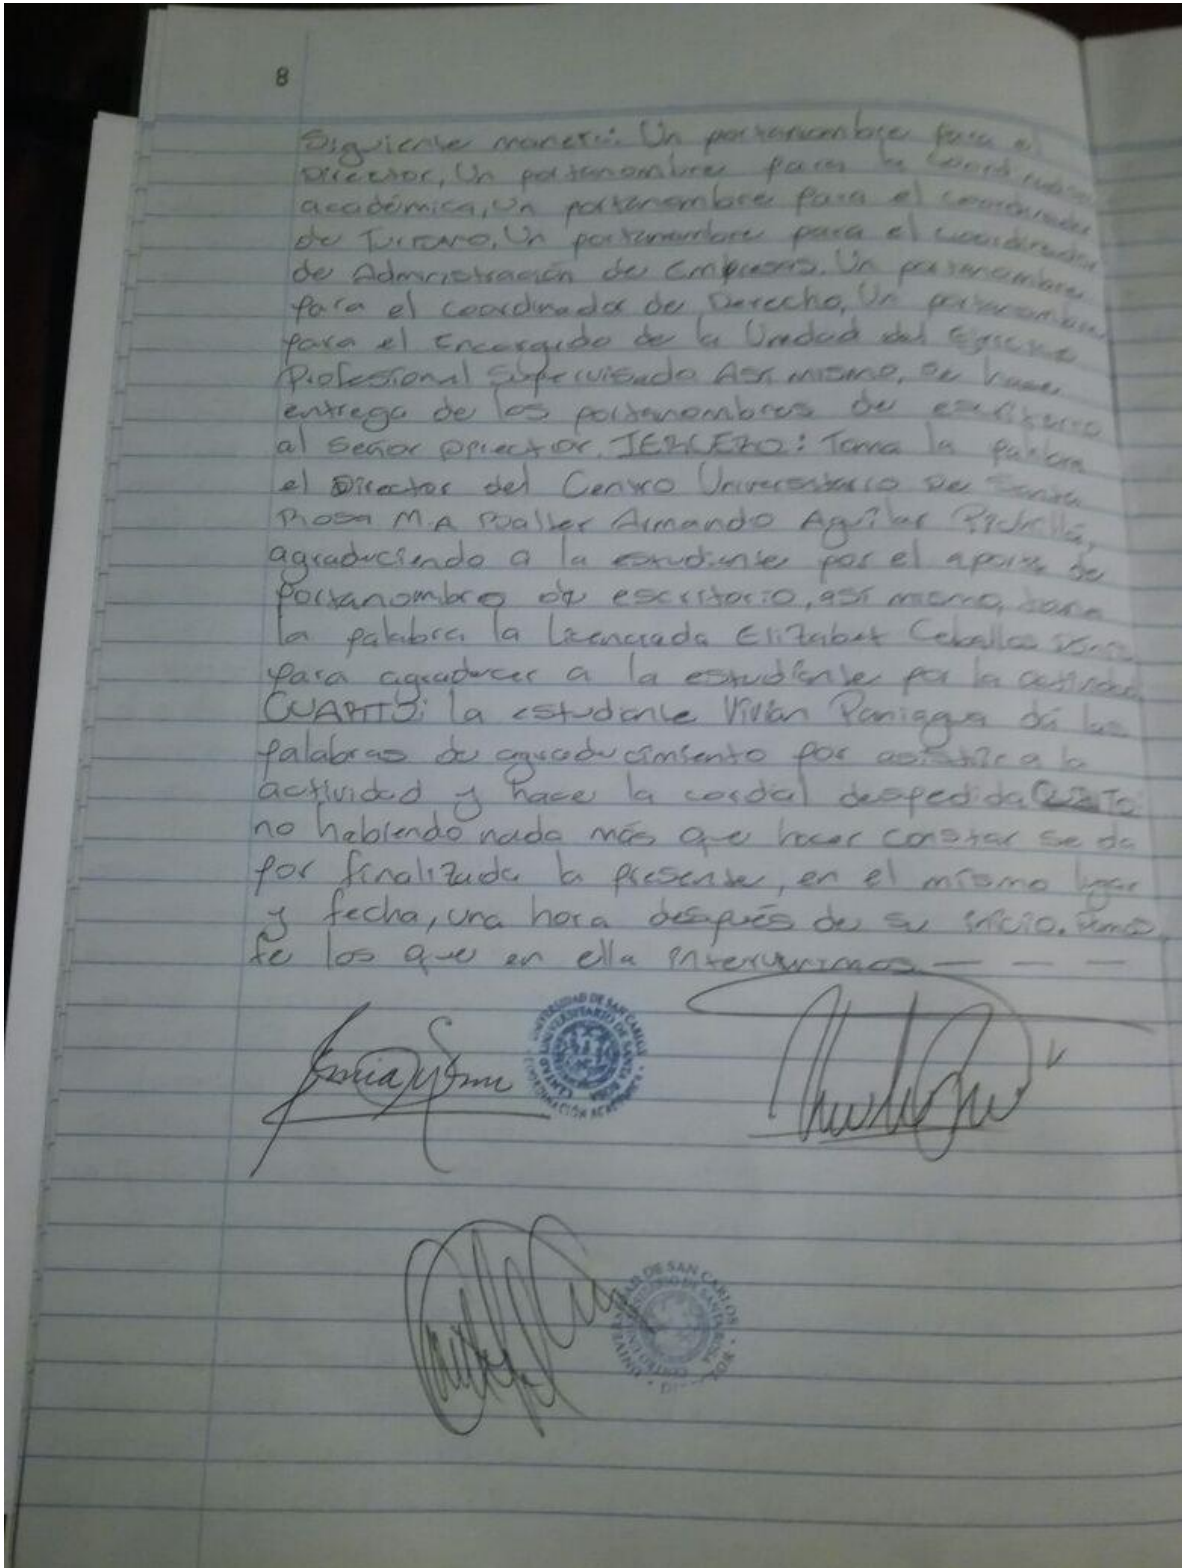 8
Siguiente manera: Un portanombre para el
Director, Un portanombre para la
académica, Un portanombre para el coordinador
de Turismo, Un portanombre para el coordinador
de Administración de Empresas. Un portanombre
para el coordinador de Derecho, Un portanombre
para el Encargado de la Unidad del Ejercicio
Profesional Supervisado Así mismo, se hace
entrega de los portanombres de escritorio
al Señor Director. TERCERO: Toma la palabra
el Director del Centro Universitario De Santa
Rosa M.A Walter Armando Aguilar
agradeciendo a la estudiante por el aporte de
portanombre de escritorio, así mismo toma
la palabra la Licenciada Elizabet Ceballos
para agradecer a la estudiante por la actividad
CUARTO: la estudiante Vivian Paniagua dá las
palabras de agradecimiento por asistir a la
actividad y hace la cordial despedida
no habiendo nada más que hacer constar se da
por finalizada la presente, en el mismo lugar
y fecha, una hora después de su inicio. Damos
fe los que en ella intervenimos — — —
DE SAN CARLOS